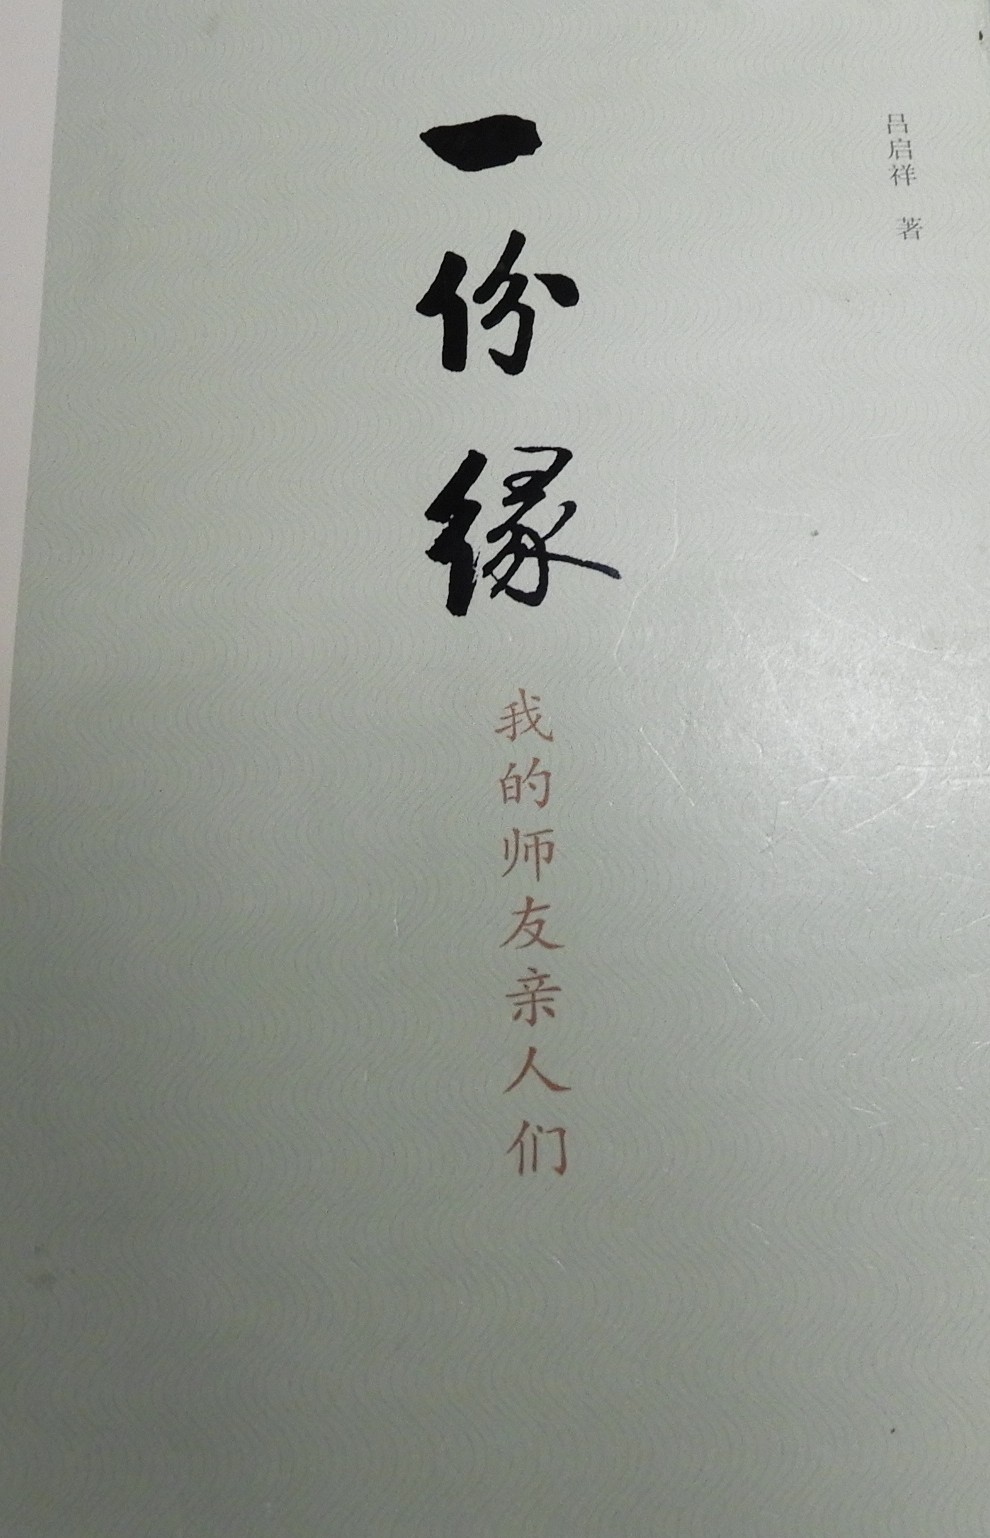 吕启祥 著
一份缘
我的师友亲人们